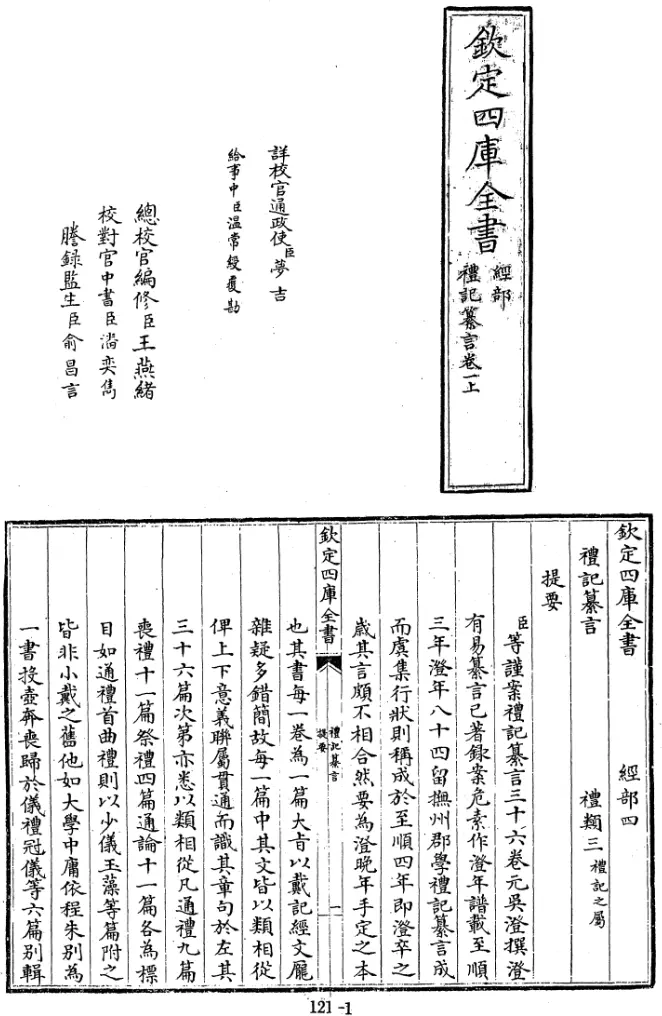 欽定四庫全書
經部
禮記纂言卷一上
詳校官通政使臣夢吉
給事中臣溫常綬覆勘
總校官編修臣王燕緒
校對官中書臣潘奕雋
謄錄監生臣俞昌言
欽定四庫全書
經部四
禮記纂言
禮類三禮記之屬
提要
臣等謹案禮記纂言三十六卷元吳澄撰澄
有易纂言已著錄案危素作澄年譜載至順
三年澄年八十四留撫州郡學禮記纂言成
而虞集行狀則稱成於至順四年即澄卒之
歲其言頗不相合然要為澄晚年手定之本
欽定四庫全書
禮記纂言
提要
一
也其書每一卷為一篇大旨以戴記經文龐
雜疑多錯簡故每一篇中其文皆以類相從
俾上下意義聯屬貫通而識其章句於左其
三十六篇次第亦悉以類相從凡通禮九篇
喪禮十一篇祭禮四篇通論十一篇各為標
目如通禮首曲禮則以少儀玉藻等篇附之
皆非小戴之舊他如大學中庸依程朱別為
一書投壺奔喪歸於儀禮冠儀等六篇別輯
121-1